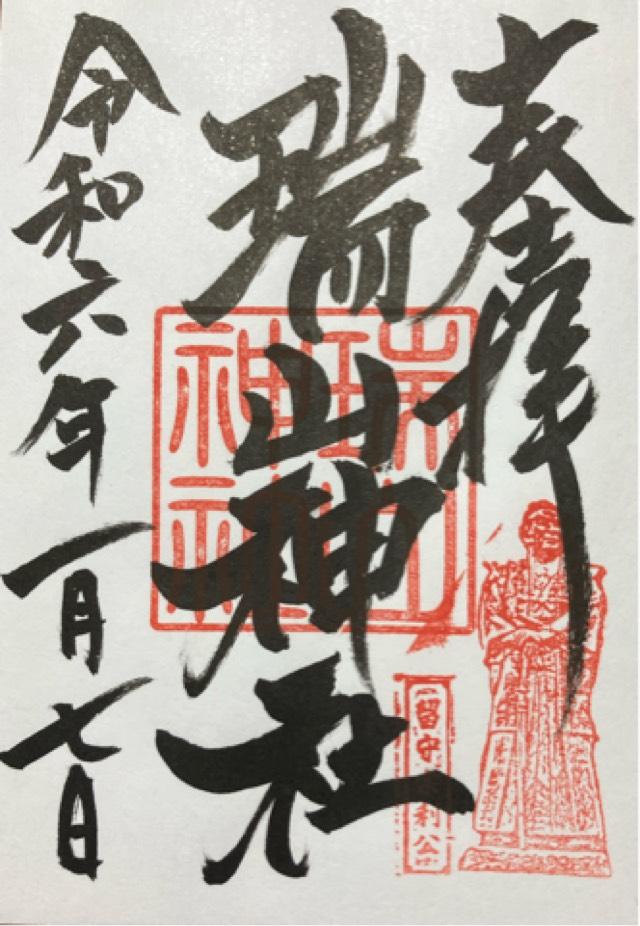 奉拝
瑞山神社
瑞山
神社
留守利公
令和六年一月七日